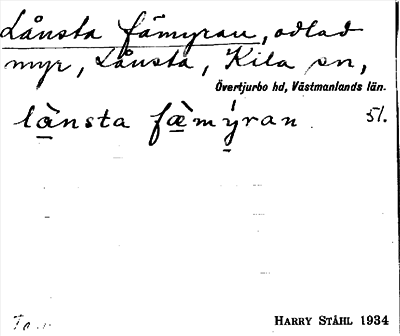 Lånsta fämyran, odlad
myr, Lånsta, Kila sn,
Övertjurbo hd, Västmanlands län.
lànsta fæ̀mýran. 51.
HARRY STÅHL 1934